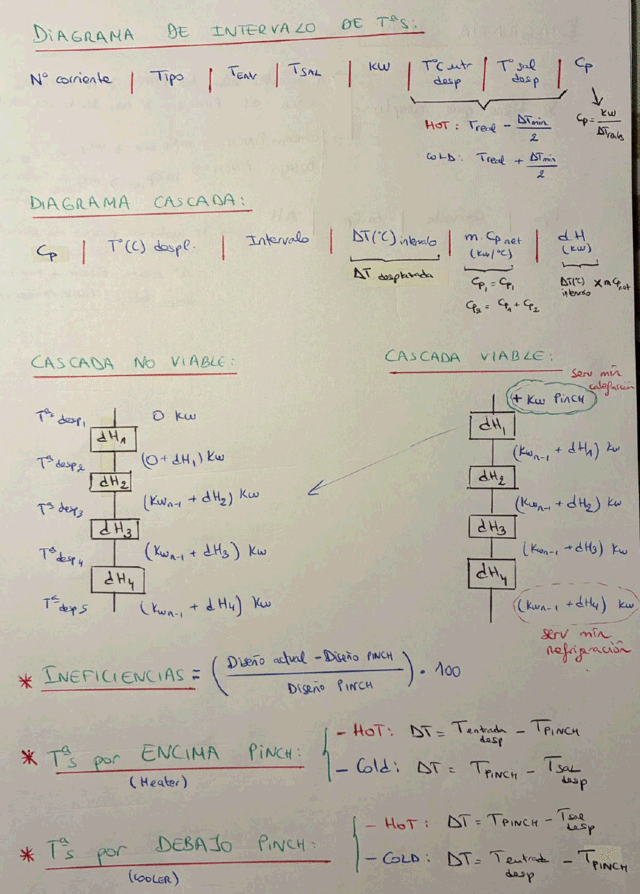 DIAGRAMA DE INTERVALO DE Tªs:
Nº corriente | Tipo | TENT | TSAL | KW | TºC entr desp | Tº sal desp | Cp
HOT: Treal - ΔTmin/2
Cp = KW/ΔTreales
COLD: Treal + ΔTmin/2
DIAGRAMA CASCADA:
Cp | Tº(C) despl. | Intervalo | ΔT(ºC) intervalo | m. Cp net (KW/ºC) | dH (KW)
ΔT desplazada
Cp1 = Cp1
Cp2 = Cp1 + Cp2
ΔT(ºC) intervalo x m Cp net
CASCADA NO VIABLE:
Tª desp1 0 KW
dH1
Tª desp2 (0 + dH1) KW
dH2
Tª desp3 (KWn-1 + dH2) KW
dH3
Tª desp4 (KWn-1 + dH3) KW
dH4
Tª desp5 (KWn-1 + dH4) KW
CASCADA VIABLE:
serv min calefacción
+ KW PINCH
dH1
(KWn-1 + dH1) KW
dH2
(KWn-1 + dH2) KW
dH3
(KWn-1 + dH3) KW
dH4
(KWn-1 + dH4) KW
serv min refrigeración
* INEFICIENCIAS = (Diseño actual - Diseño PINCH / Diseño PINCH) · 100
* Tªs por ENCIMA PINCH:
(Heater)
- HOT: ΔT = Tentrada desp - TPINCH
- Cold: ΔT = TPINCH - TSAL desp
* Tªs por DEBAJO PINCH:
(COOLER)
- HOT: ΔT = TPINCH - Tsal desp
- COLD: ΔT = Tentrada desp - TPINCH